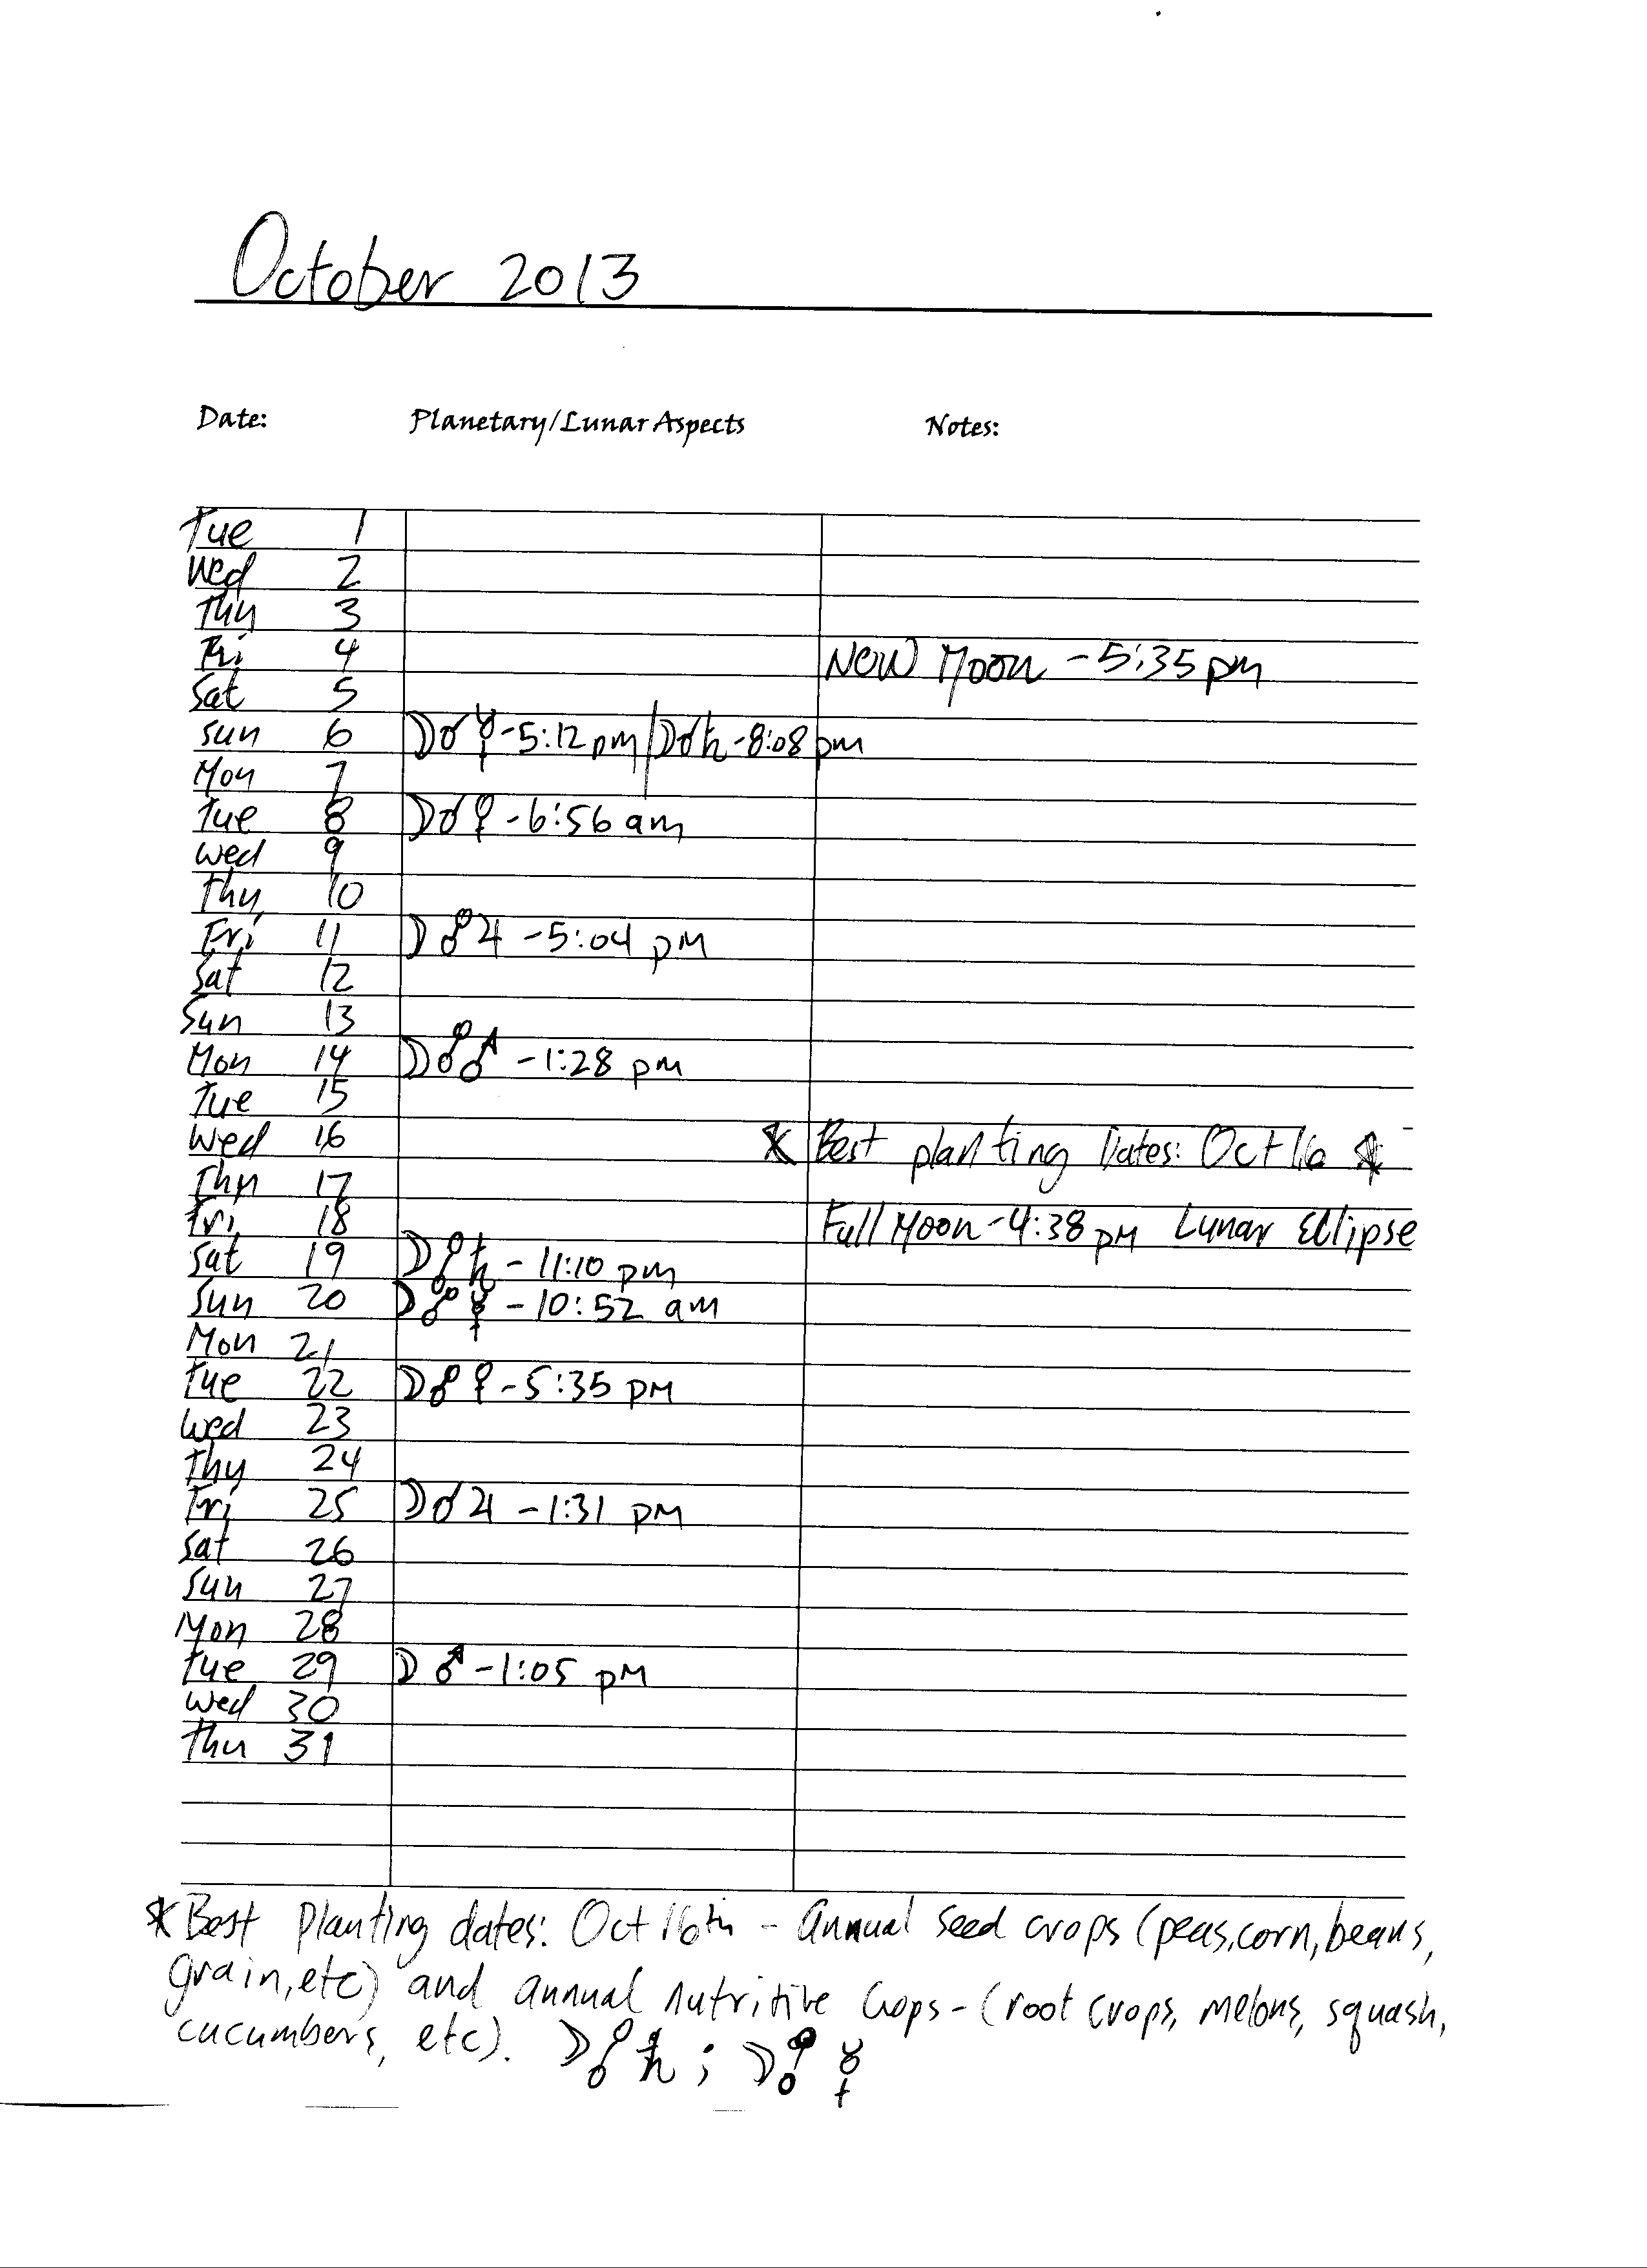 October 2013
Date: Planetary/Lunar Aspects Notes:
Tue 1
Wed 2
Thu 3
Fri 4 New Moon - 5:35 pm
Sat 5
Sun 6 ☽☌☿ - 5:12 pm / ☽☌♄ - 8:08 pm
Mon 7
Tue 8 ☽☌♀ - 6:56 am
Wed 9
Thu 10
Fri 11 ☽☍♃ - 5:04 pm
Sat 12
Sun 13
Mon 14 ☽☍♂ - 1:28 pm
Tue 15
Wed 16 * Best planting Dates: Oct 16 *
Thu 17
Fri 18 Full Moon - 4:38 pm Lunar Eclipse
Sat 19 ☽☍♄ - 11:10 pm
Sun 20 ☽☍☿ - 10:52 am
Mon 21
Tue 22 ☽☍♀ - 5:35 pm
Wed 23
Thu 24
Fri 25 ☽☌♃ - 1:31 pm
Sat 26
Sun 27
Mon 28
Tue 29 ☽♂ - 1:05 pm
Wed 30
Thu 31
* Best Planting dates: Oct 16th - Annual seed crops (peas, corn, beans,
grain, etc) and annual nutritive Crops - (root crops, melons, squash,
cucumbers, etc). ☽☍♄ ; ☽☍☿